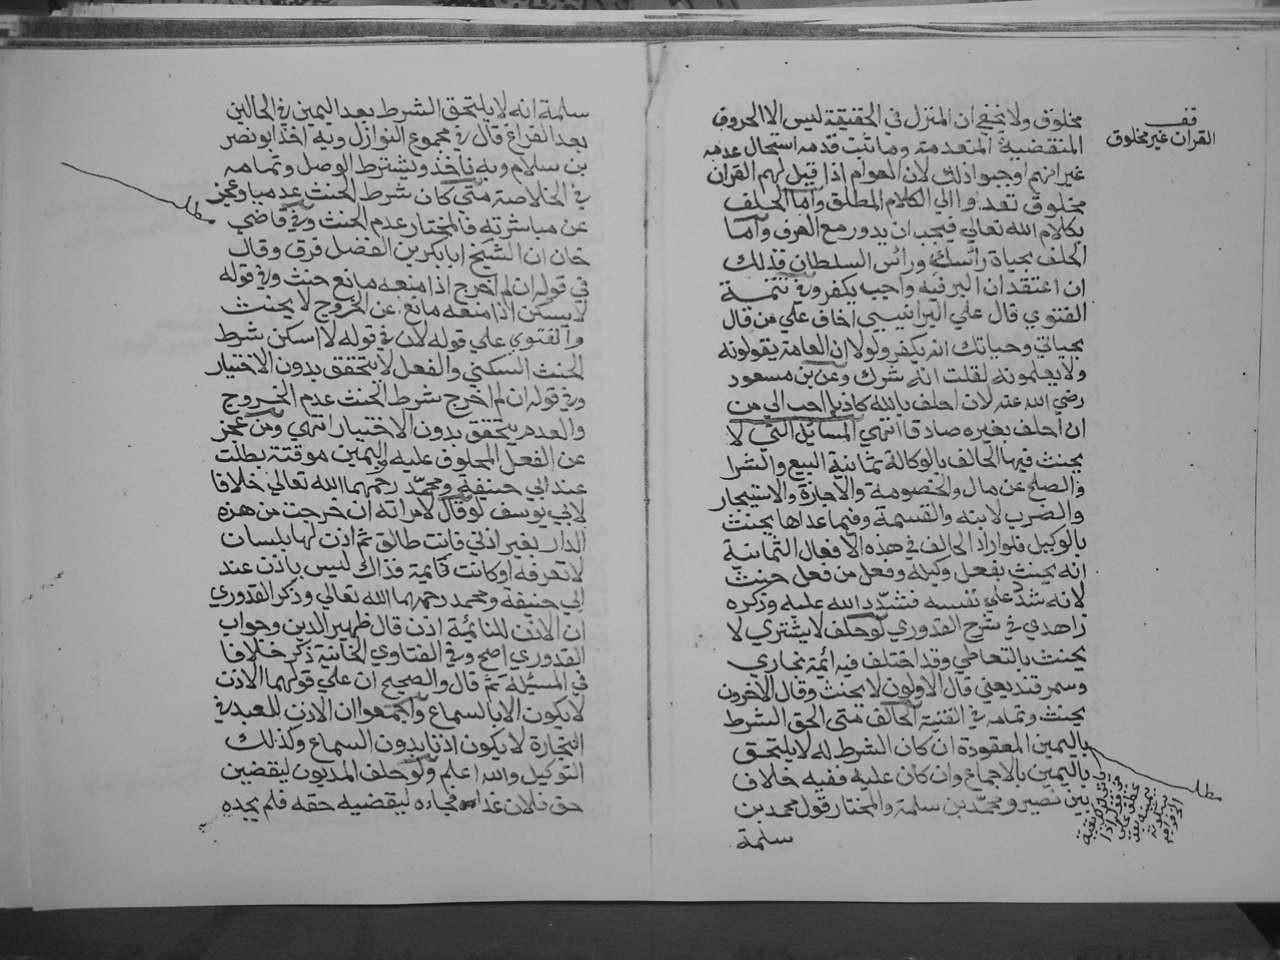 قف
القران غير مخلوق
مخلوق ولا يخفي ان المنزل في الحقيقة ليس الا الحروف
المنقضية المنعدمة وما ثبت قدمه استحال عدمه
غير انهم اوجبوا ذلك لان العوام اذا قيل لهم القران
مخلوق تعدوا الي الكلام المطلق واما الحلف
بكلام الله تعالي فيجب ان يدور مع العرف واما
الحلف بحياة رأسك ورأس السلطان فذلك
ان اعتقد ان البر فيه واجب يكفر وفي تتمة
الفتوي قال علي الرازي اخاف علي من قال
بحياتي وحياتك انه يكفر ولولا ان العامة يقولونه
ولا يعلمونه لقلت انه شرك وعن بن مسعود
رضي الله عنه لان احلف بالله كاذبا احب الي من
ان احلف بغيره صادقا انتهي المسايل التي لا
يحنث فيها الحالف بالوكالة ثمانية البيع والشرا
والصلح عن مال والخصومة والاجارة والاستيجار
والضرب لابنه والقسمة وفيما عداها يحنث
بالوكيل فلو اراد الحالف في هذه الافعال الثمانية
انه يحنث بفعل وكيله وفعل من فعل حنث
لانه شدد علي نفسه فشدد الله عليه وذكره
زاهدي في شرح القدوري لو حلف لا يشتري لا
يحنث بالتعاطي وقد اختلف فيه ائمة بخاري
وسمرقند يعني قال الاولون لا يحنث وقال الاخرون
يحنث وتمامه في القنية الحالف متي الحق الشرط
باليمين المعقودة ان كان الشرط له لا يلتحق
باليمين بالاجماع وان كان عليه ففيه خلاف
بين نصير ومحمد بن سلمة والمختار قول محمد بن
سلمة
مطلب
سلمة انه لا يلتحق الشرط بعد اليمين في الحالين
بعد الفراغ قال في مجموع النوازل وبه اخذ ابو نصر
بن سلام وبه ناخذ ونشترط الوصل وتمامه
في الخلاصة متي كان شرط الحنث عدميا وعجز
عن مباشرته فالمختار عدم الحنث وفي قاضي
خان ان الشيخ ابا بكر بن الفضل فرق وقال
في قوله ان لم اخرج اذا منعه مانع حنث وفي قوله
لا يسكن اذا منعه مانع عن الخروج لا يحنث
والفتوي علي قوله لان في قوله لا اسكن شرط
الحنث السكني والفعل لا يتحقق بدون الاختيار
وفي قوله ان لم اخرج شرط الحنث عدم الخروج
والعدم يتحقق بدون الاختيار انتهي ومن عجز
عن الفعل المحلوف عليه واليمين موقتة بطلت
عند ابي حنيفة ومحمد رحمهما الله تعالي خلافا
لابي يوسف لو قال لامراته ان خرجت من هذه
الدار بغير اذني فانت طالق ثم اذن لها بلسان
لا تعرفه او كانت نايمة فذاك ليس باذن عند
ابي حنيفة ومحمد رحمهما الله تعالي وذكر القدوري
ان الاذن للنائمة اذن قال ظهير الدين وجواب
القدوري اصح وفي الفتاوي الخانية ذكر خلافا
في المسئلة ثم قال والصحيح ان علي قولهما الاذن
لا يكون الا بالسماع واجمعوا ان الاذن للعبد في
التجارة لا يكون اذنا بدون السماع وكذلك
التوكيل والله اعلم ولو حلف المديون ليقضين
حق فلان غدا فجاءه ليقضيه حقه فلم يجده
مطلب